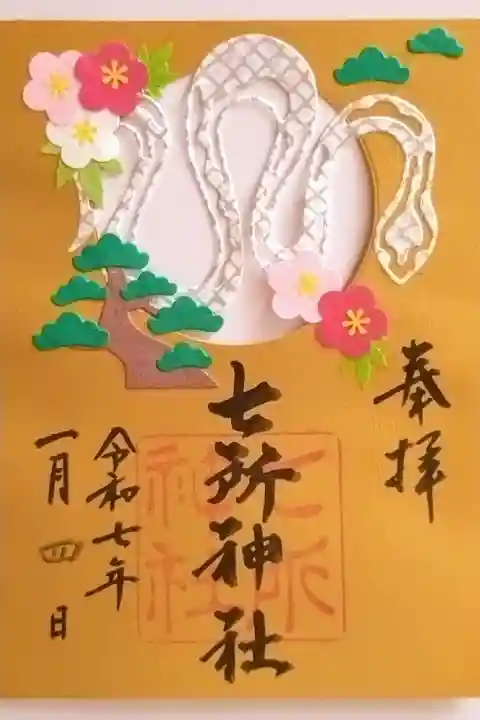 奉拝
七所神社
七所
神社
令和七年
一月四日